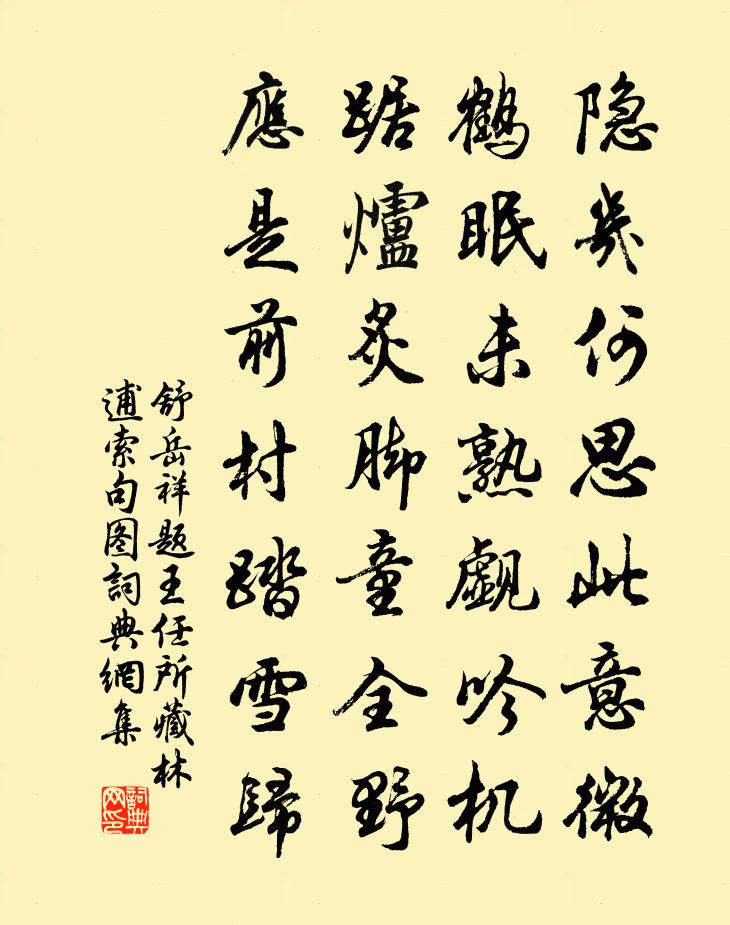 隐几何思此意微
鹤眠未熟觑吟机
踞爐炙脚童全野
應是前村踏雪歸
舒岳祥题王任所藏林
逋索句图詞典網集
詞典网印